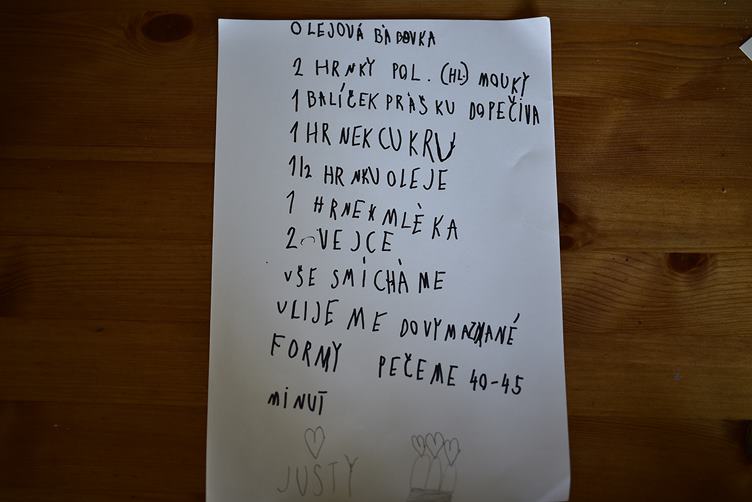 OLEJOVÁ BÁBOVKA
2 HRNKY POL. (HL.) MOUKY
1 BALÍČEK PRÁŠKU DO PEČIVA
1 HRNEK CUKRU
1/2 HRNKU OLEJE
1 HRNEK MLÉKA
2 VEJCE
VŠE SMÍCHÁME
VLIJEME DO VYMAZANÉ
FORMY PEČEME 40-45
MINUT
JUSTÝ